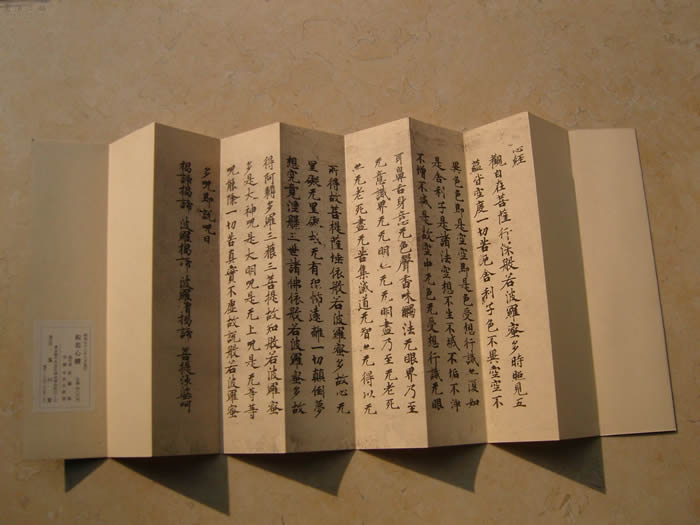 心経
觀自在菩薩行深般若波羅蜜多時照見五
蘊皆空度一切苦厄舎利子色不異空空不
異色色即是空空即是色受想行識亦復如
是舎利子是諸法空想不生不滅不垢不淨
不增不減是故空中无色无受想行識无眼
耳鼻舌身意无色聲香味觸法无眼界乃至
无意識界无无明亦无无明盡乃至无老死
亦无老死盡无苦集滅道无智亦无得以无
所得故菩提薩埵依般若波羅蜜多故心无
罣礙无罣礙故无有恐怖遠離一切顛倒夢
想究竟涅槃三世諸佛依般若波羅蜜多故
得阿耨多羅三藐三菩提故知般若波羅蜜
多是大神呪是大明呪是无上呪是无等等
呪能除一切苦真實不虛故說般若波羅蜜
多呪即說呪曰
揭諦揭諦 波羅揭諦 波羅僧揭諦 菩提莎婆呵
般若心經